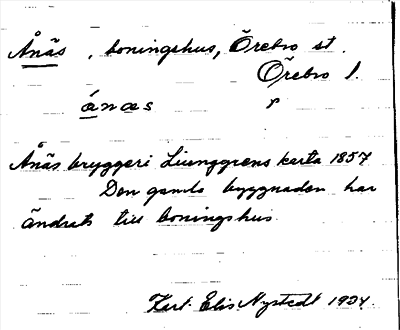 Ånäs, boningshus, Örebro st.
Örebro l.
ánæs
Ånäs bryggeri Ljunggrens karta 1857
Den gamla byggnaden har
ändrats till boningshus.
Elis Nystedt 1924.